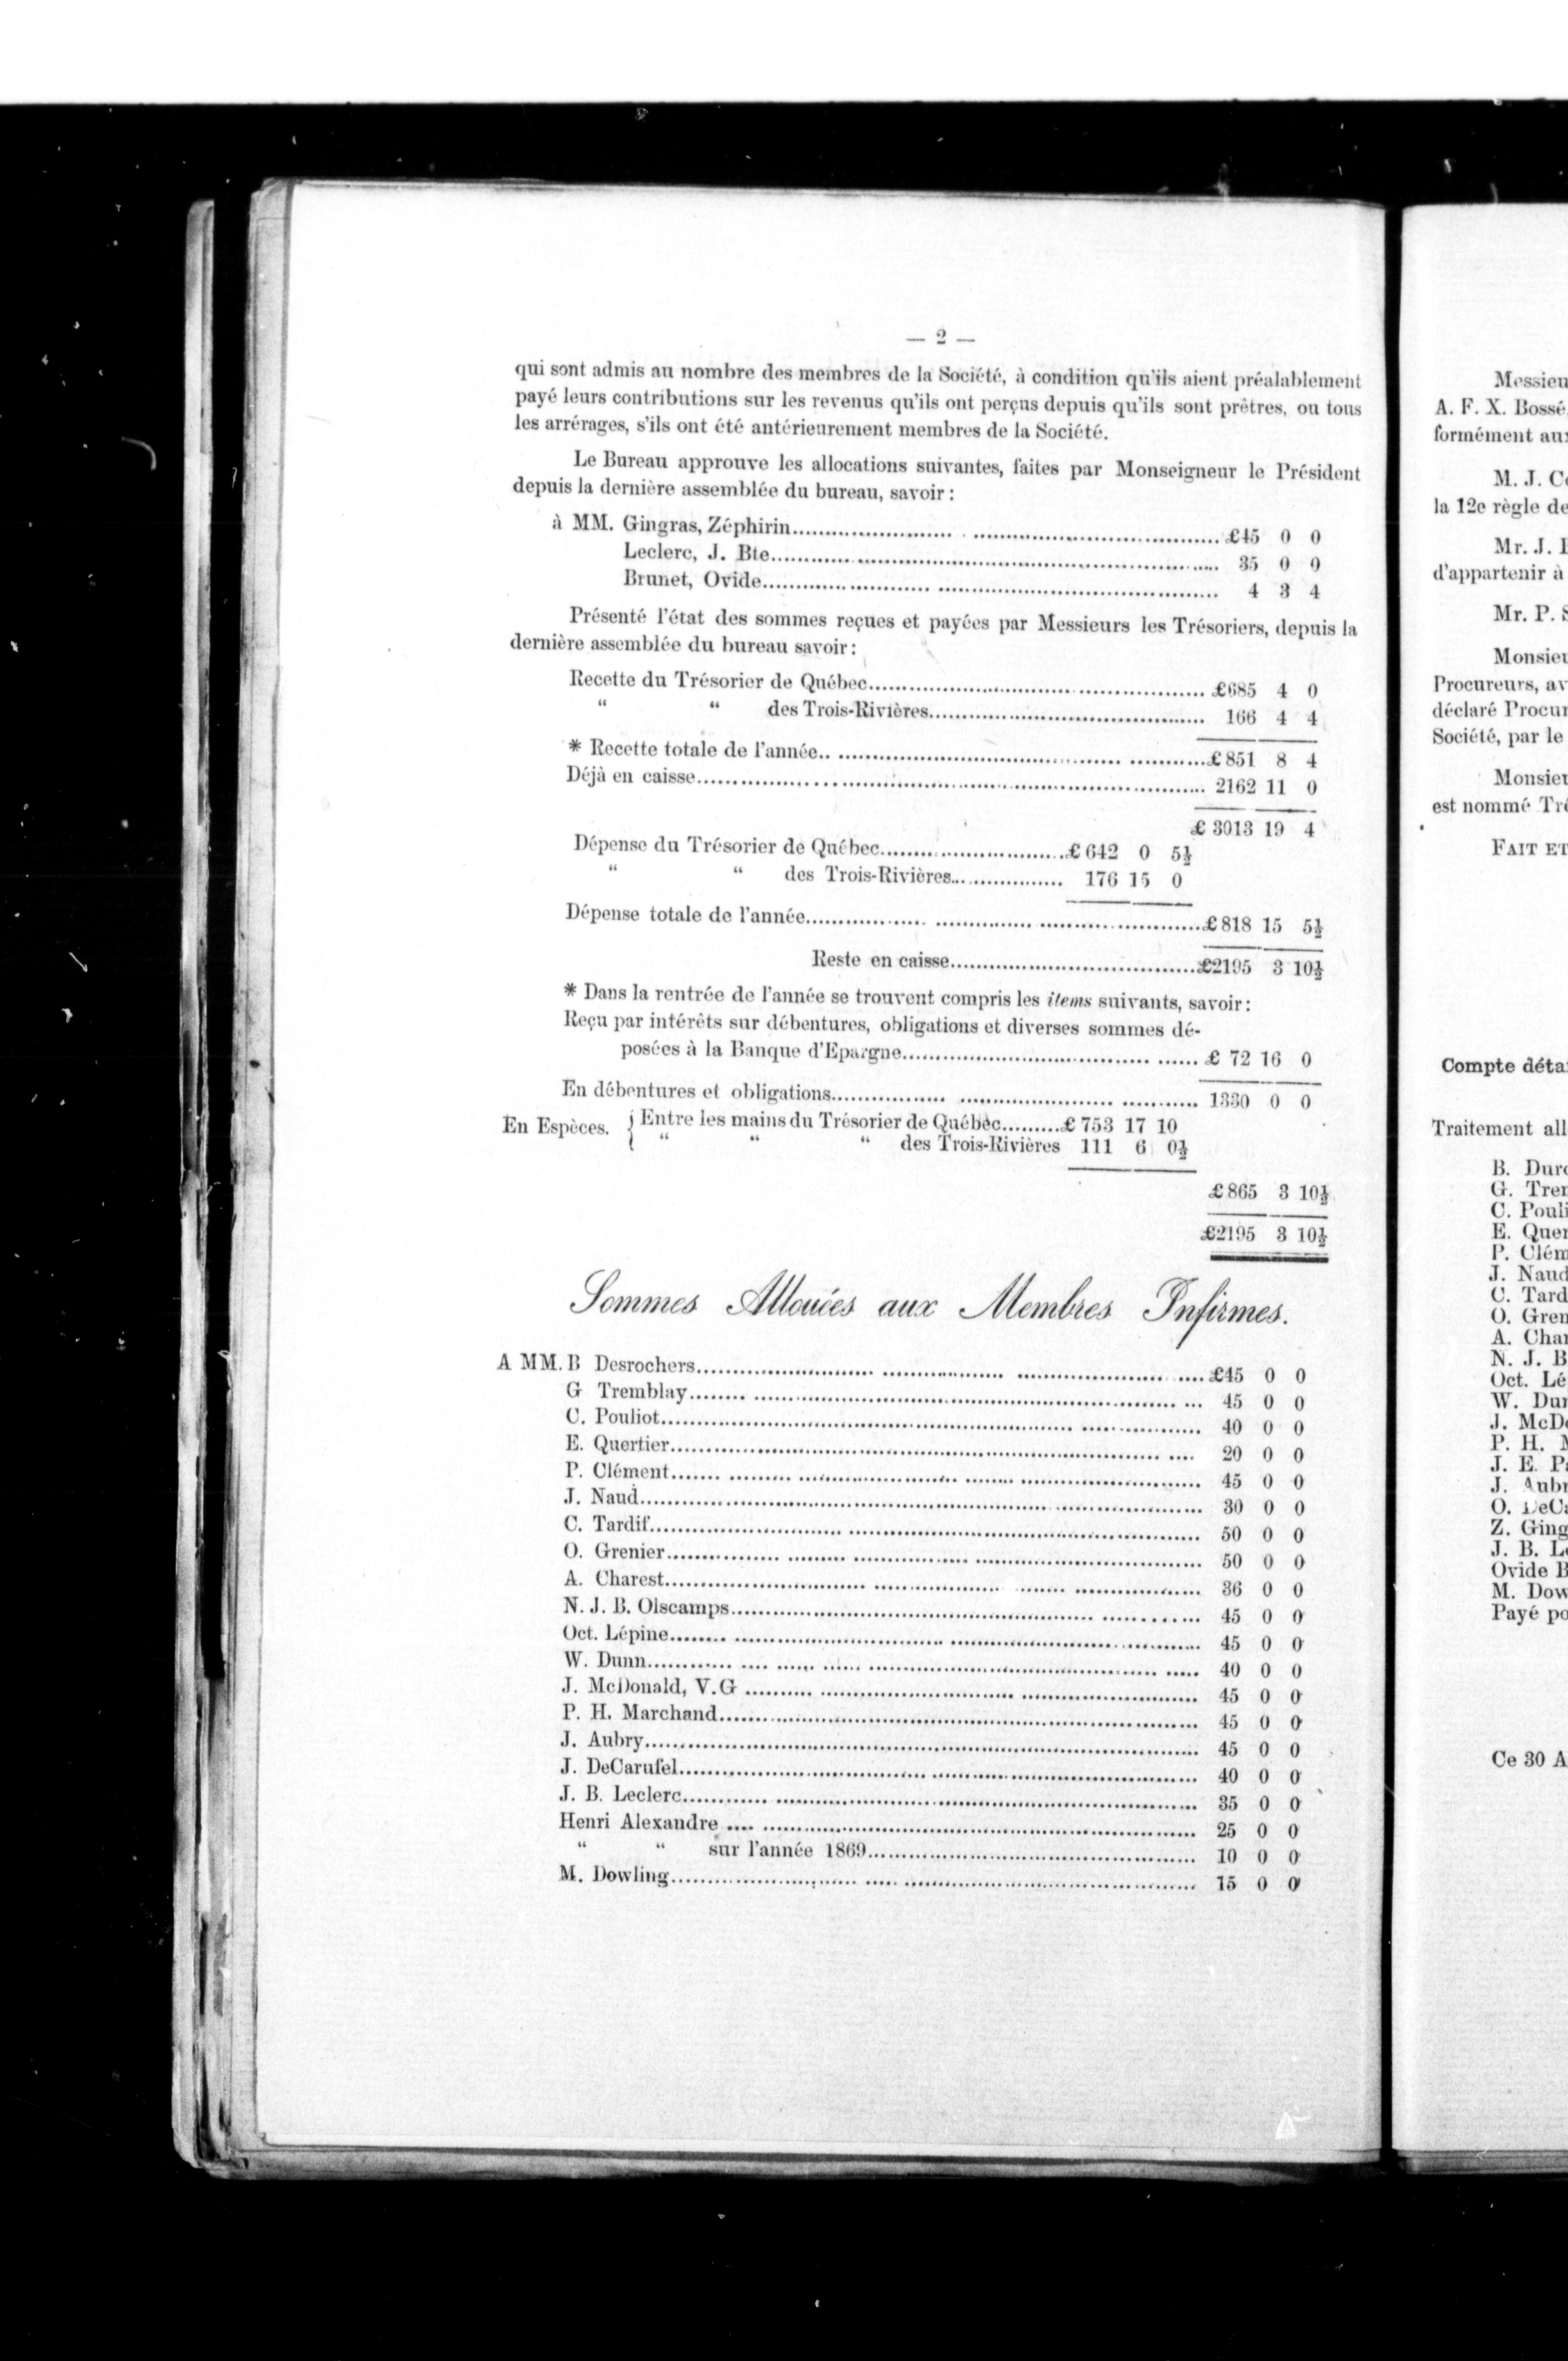 — 2 —
qui sont admis au nombre des membres de la Société, à condition qu'ils aient préalablement
payé leurs contributions sur les revenus qu'ils ont perçus depuis qu'ils sont prêtres, ou tous
les arrérages, s'ils ont été antérieurement membres de la Société.
Le Bureau approuve les allocations suivantes, faites par Monseigneur le Président
depuis la dernière assemblée du bureau, savoir :
à MM. Gingras, Zéphirin.................... £45 0 0
Leclerc, J. Bte.................... 35 0 0
Brunet, Ovide.................... 4 3 4
Présenté l'état des sommes reçues et payées par Messieurs les Trésoriers, depuis la
dernière assemblée du bureau savoir :
Recette du Trésorier de Québec.................... £685 4 0
“ “ des Trois-Rivières.................... 166 4 4
* Recette totale de l'année.................... £851 8 4
Déjà en caisse.................... 2162 11 0
£ 3013 19 4
Dépense du Trésorier de Québec.................... £642 0 5½
“ “ des Trois-Rivières.................... 176 15 0
Dépense totale de l'année.................... £818 15 5½
Reste en caisse.................... £2195 3 10½
* Dans la rentrée de l'année se trouvent compris les items suivants, savoir :
Reçu par intérêts sur débentures, obligations et diverses sommes dé-
posées à la Banque d'Epargne.................... £ 72 16 0
En débentures et obligations.................... 1330 0 0
En Espèces. { Entre les mains du Trésorier de Québec......... £753 17 10
“ “ “ des Trois-Rivières 111 6 0½
£865 3 10½
£2195 3 10½
Sommes Allouées aux Membres Infirmes.
A MM. B Desrochers.................... £45 0 0
G Tremblay.................... 45 0 0
C. Pouliot.................... 40 0 0
E. Quertier.................... 20 0 0
P. Clément.................... 45 0 0
J. Naud.................... 30 0 0
C. Tardif.................... 50 0 0
O. Grenier.................... 50 0 0
A. Charest.................... 36 0 0
N. J. B. Olscamps.................... 45 0 0
Oct. Lépine.................... 45 0 0
W. Dunn.................... 40 0 0
J. McDonald, V.G .................... 45 0 0
P. H. Marchand.................... 45 0 0
J. Aubry.................... 45 0 0
J. DeCarufel.................... 40 0 0
J. B. Leclerc.................... 35 0 0
Henri Alexandre .................... 25 0 0
“ “ sur l'année 1869.................... 10 0 0
M. Dowling.................... 15 0 0
A. F. X. Bossé
formément
M. J.
la 12e règle de
Mr. J.
d'appartenir à
Mr. P.
Procureurs,
déclaré
Société, par le
est nommé
FAIT ET
Compte
Traitement
B.
G.
C.
E.
P.
J.
C.
O.
A.
N. J. B
Oct.
W.
J.
P. H.
J. E.
J.
O.
Z.
J. B.
Ovide B
M.
Payé
Ce 30